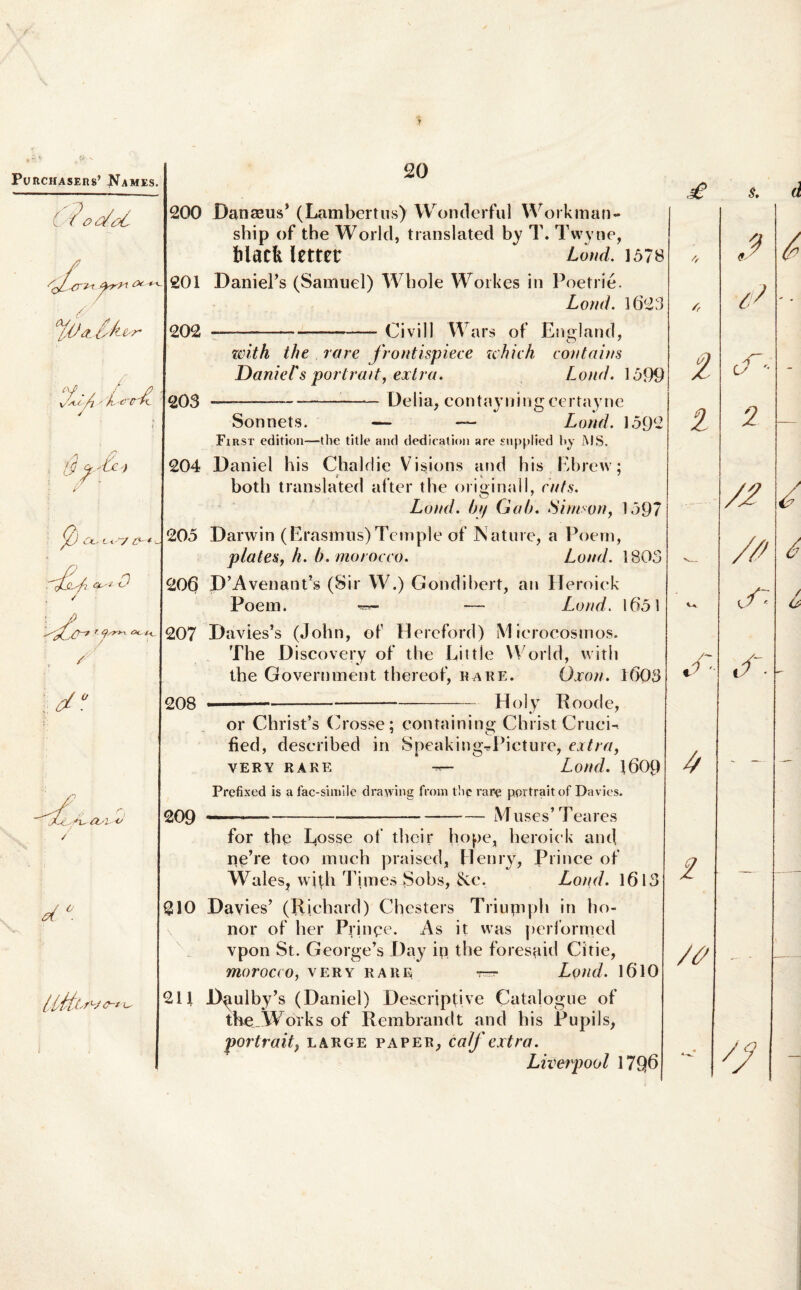 20
PURCHASERS' NAMES.
£ s. d
200 Danæus' (Lambertus) Wonderful Workman-
ship of the World, translated by T. Twyne,
black letter Lond. 1578
201 Daniel's (Samuel) Whole Workes in Poetrié.
Lond. 1623
202 ———— Civill Wars of England,
with the rare frontispiece which contains
Daniel's portrait, extra. Lond. 1599
2
203 ———— Delia, contayning certayne
Sonnets. — — Lond. 1592
2 2
FIRST edition—the title and dedication are supplied by MS.
204 Daniel his Chaldie Visions and his Ebrew;
both translated after the originall, cuts.
Lond. by Gab. Simson, 1597
12 6
205 Darwin (Erasmus) Temple of Nature, a Poem,
plates, h. b. morocco. Lond. 1803
206 D'Avenant's (Sir W.) Gondibert, an Heroick
Poem. — — Lond. 1651
207 Davies's (John, of Hereford) Microcosmos.
The Discovery of the Little World, with
the Government thereof, RARE. Oxon. 1603
5 5 -
do
208 ———— Holy Roode,
or Christ's Crosse; containing Christ Cruci-
fied, described in Speaking-Picture, extra,
VERY RARE — Lond. 1609
4 - -
Prefixed is a fac-simile drawing from the rare portrait of Davies.
209 ———— Muses' Teares
for the Losse of their hope, heroick and
ne're too much praised, Henry, Prince of
Wales, with Times Sobs, &c. Lond. 1613
2
do
210 Davies' (Richard) Chesters Triumph in ho-
nor of her Prince. As it was performed
vpon St. George's Day in the foresaid Citie,
morocco, VERY RARE — Lond. 1610
10
211 Daulby's (Daniel) Descriptive Catalogue of
the Works of Rembrandt and his Pupils,
portrait, LARGE PAPER, calf extra.
Liverpool 1796